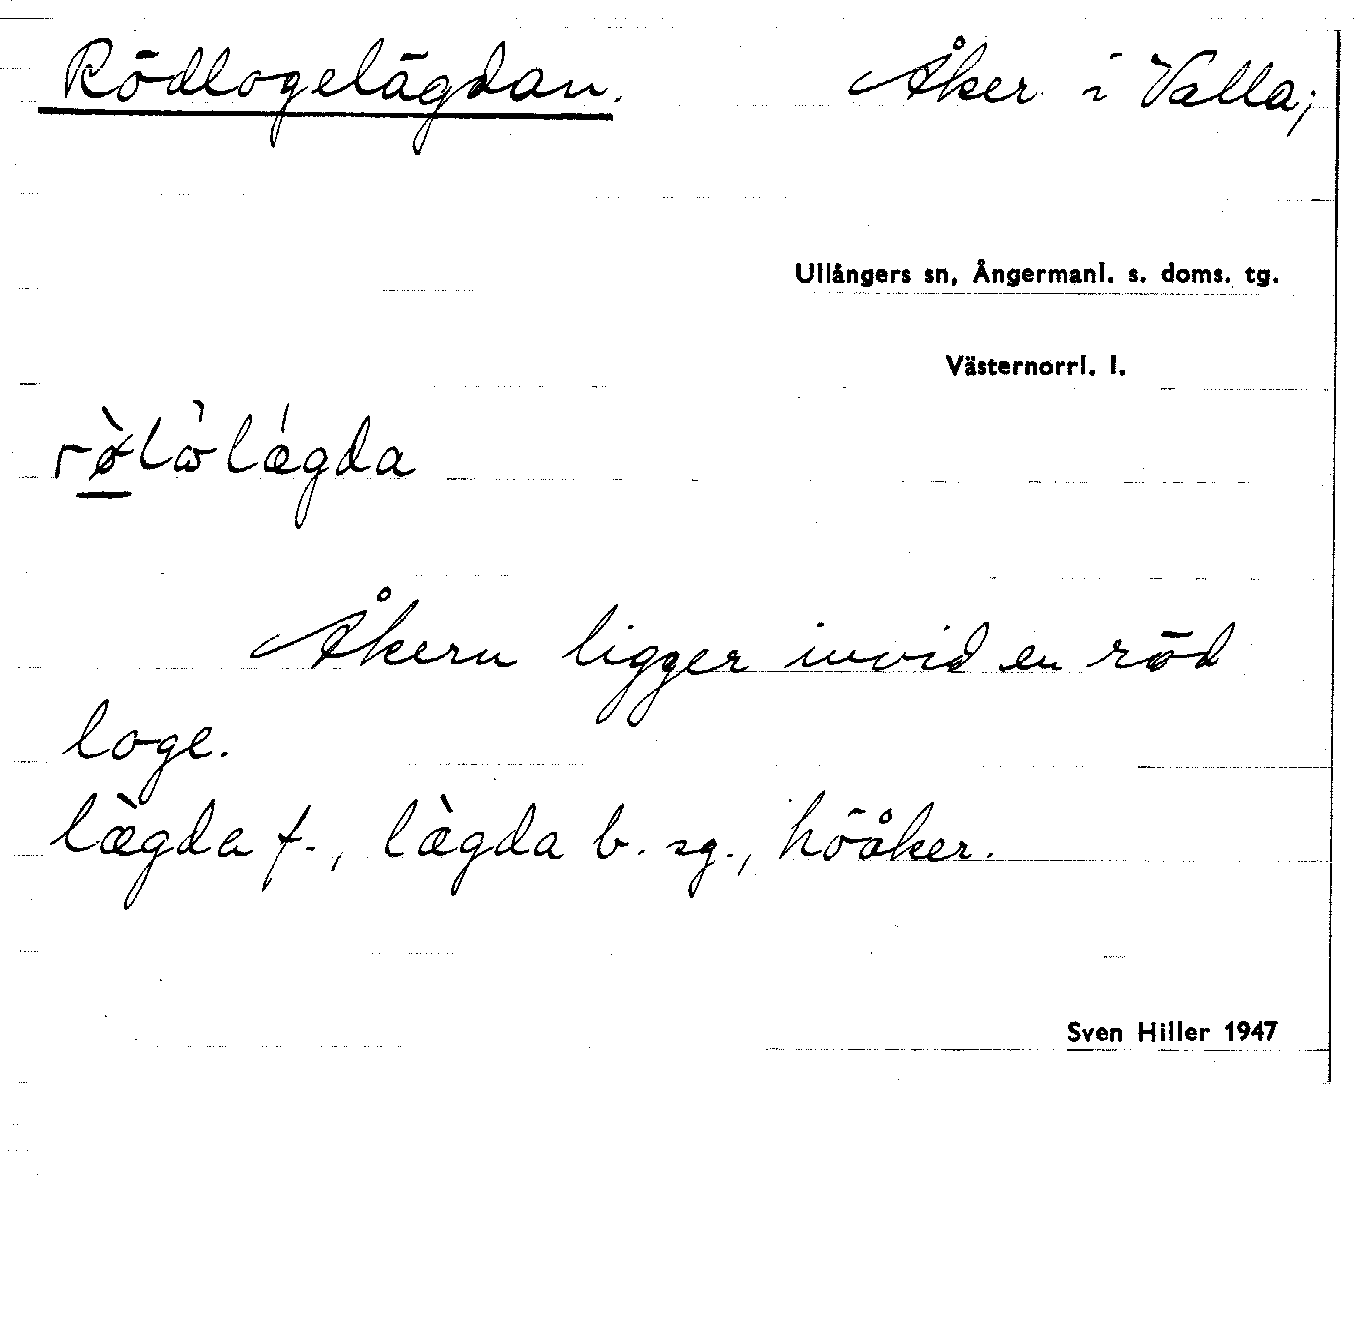 Rödlogelägdan. Åker i Valla;
Ullångers sn, Ångermanl. s. doms. tg.
Västernorrl. l.
Åkern ligger invid en röd
loge.
lægda f., lægda b. sg., höåker.
Sven Hiller 1947